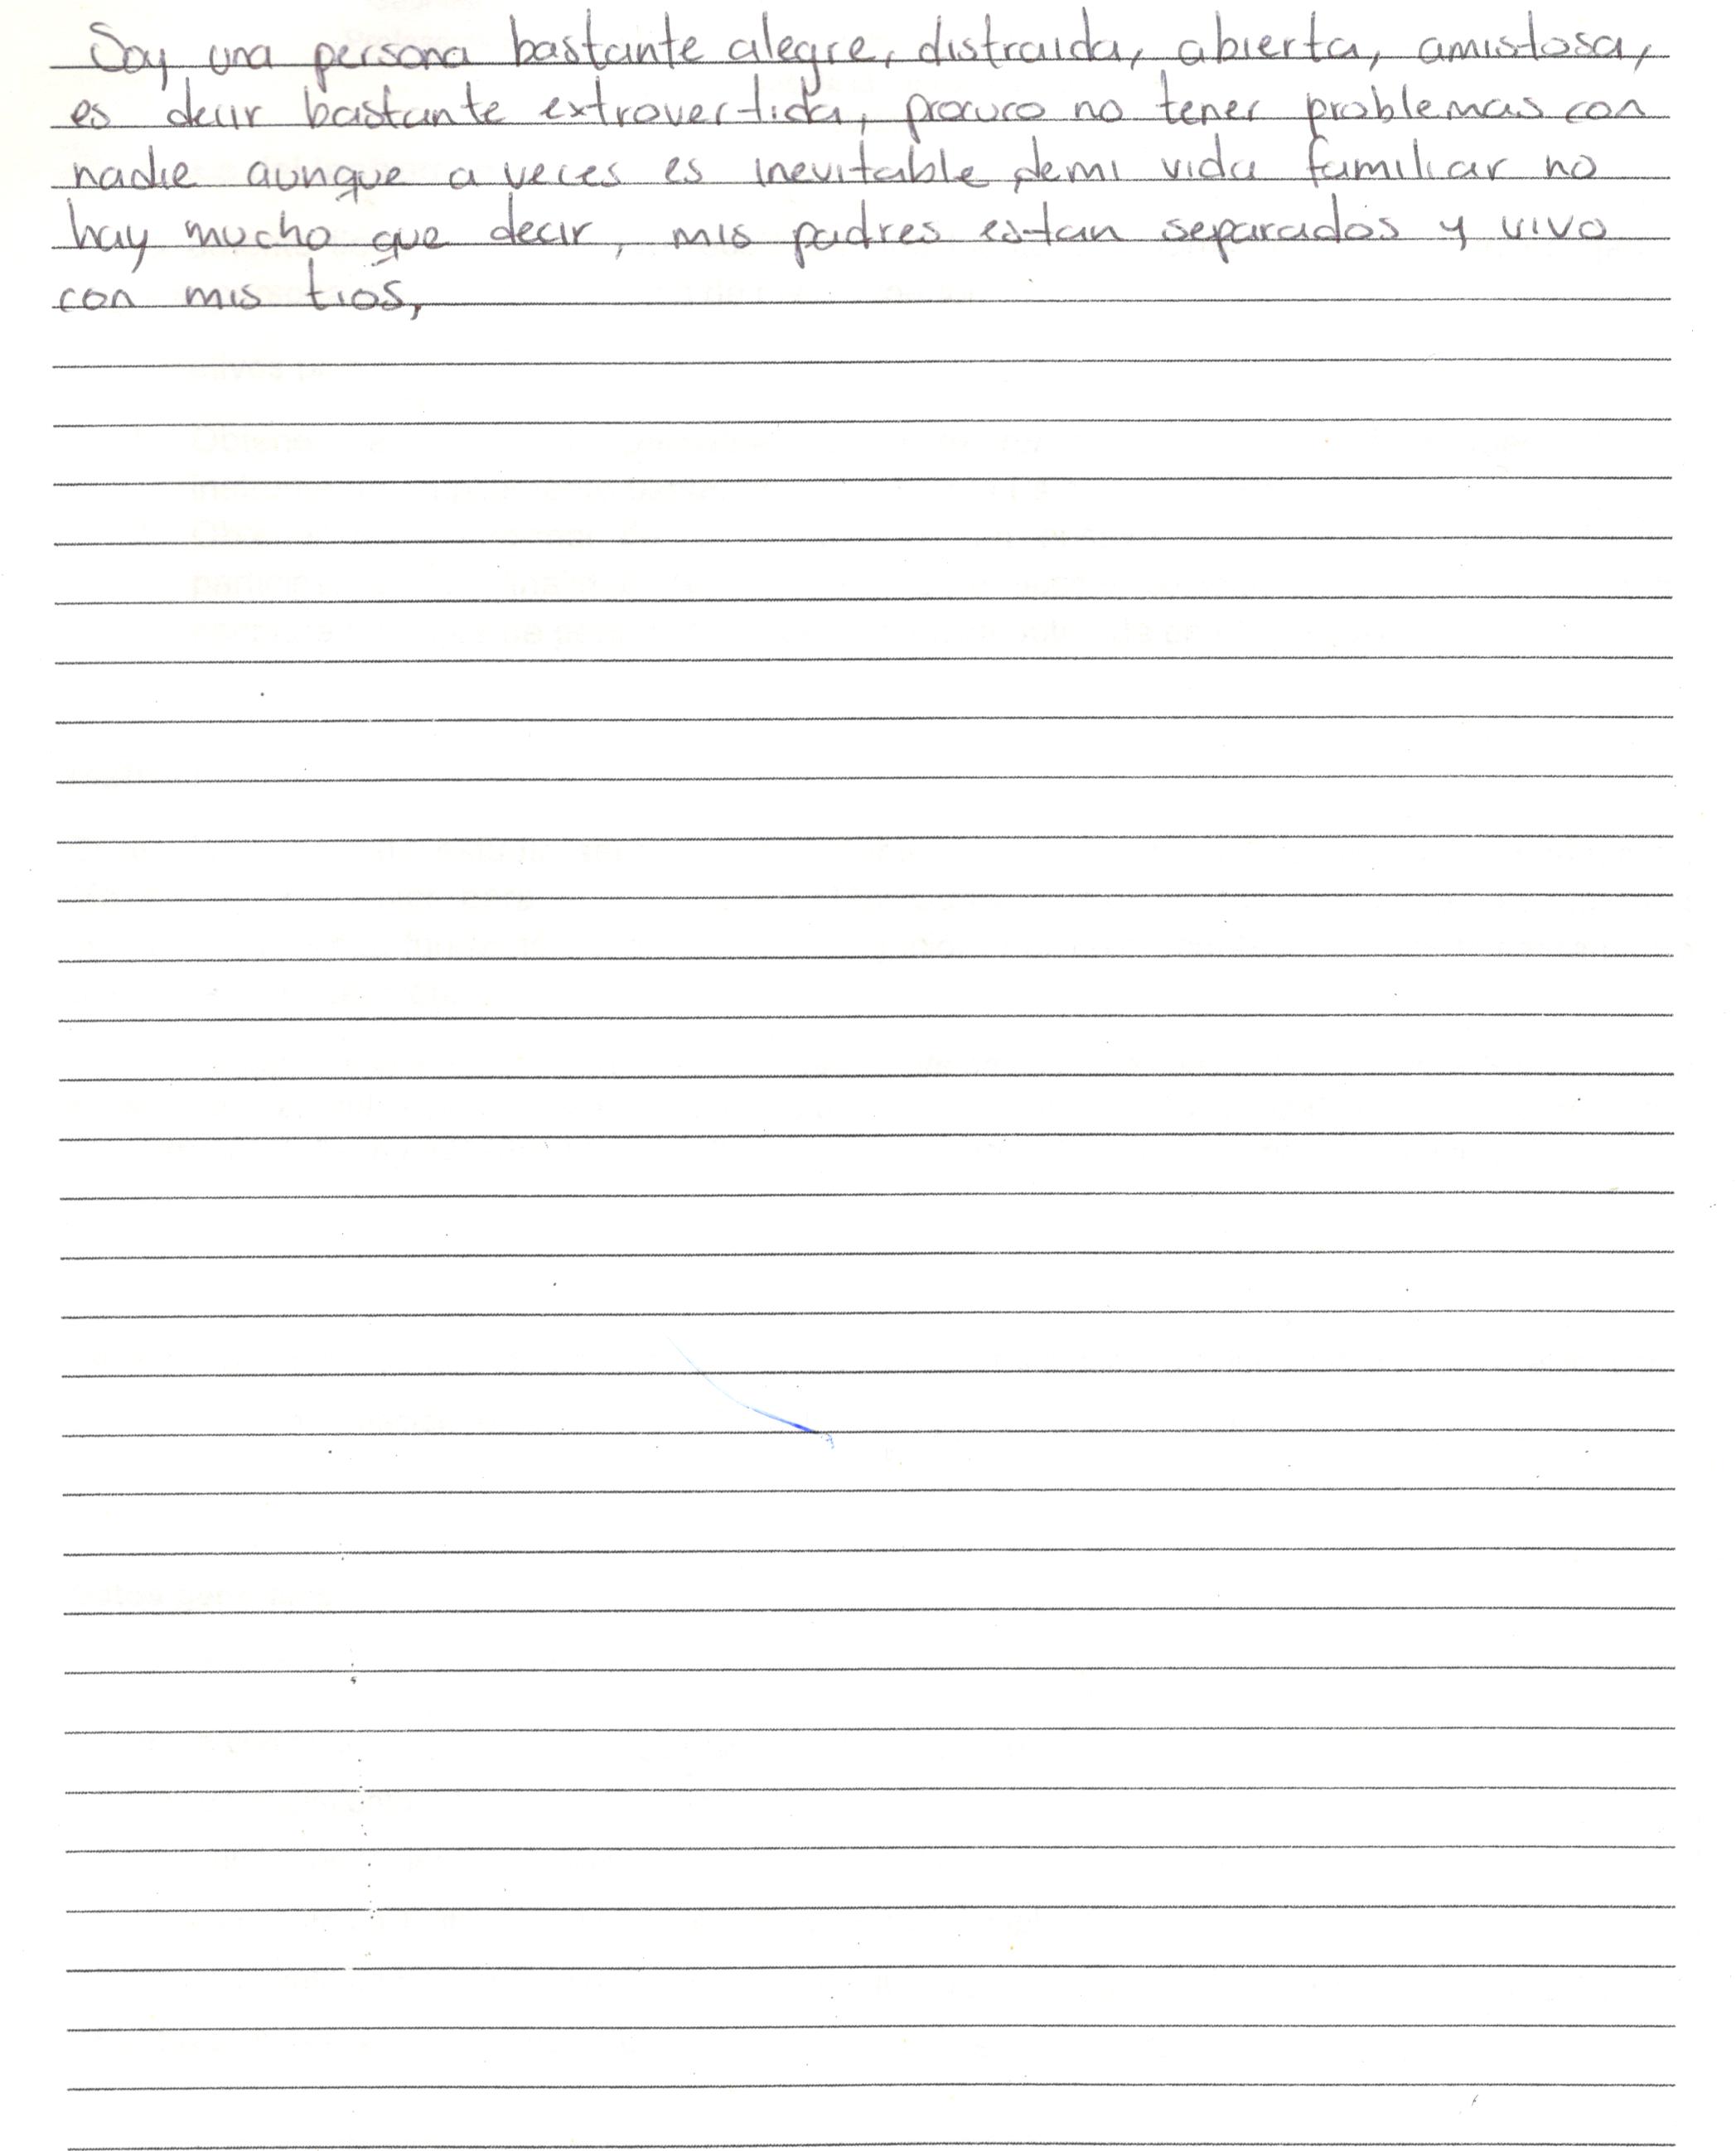 Soy una persona bastante alegre, distraida, abierta, amistosa,
es decir bastante extrovertida, procuro no tener problemas con
nadie aunque a veces es inevitable, de mi vida familiar no
hay mucho que decir, mis padres estan separados y vivo
con mis tios,